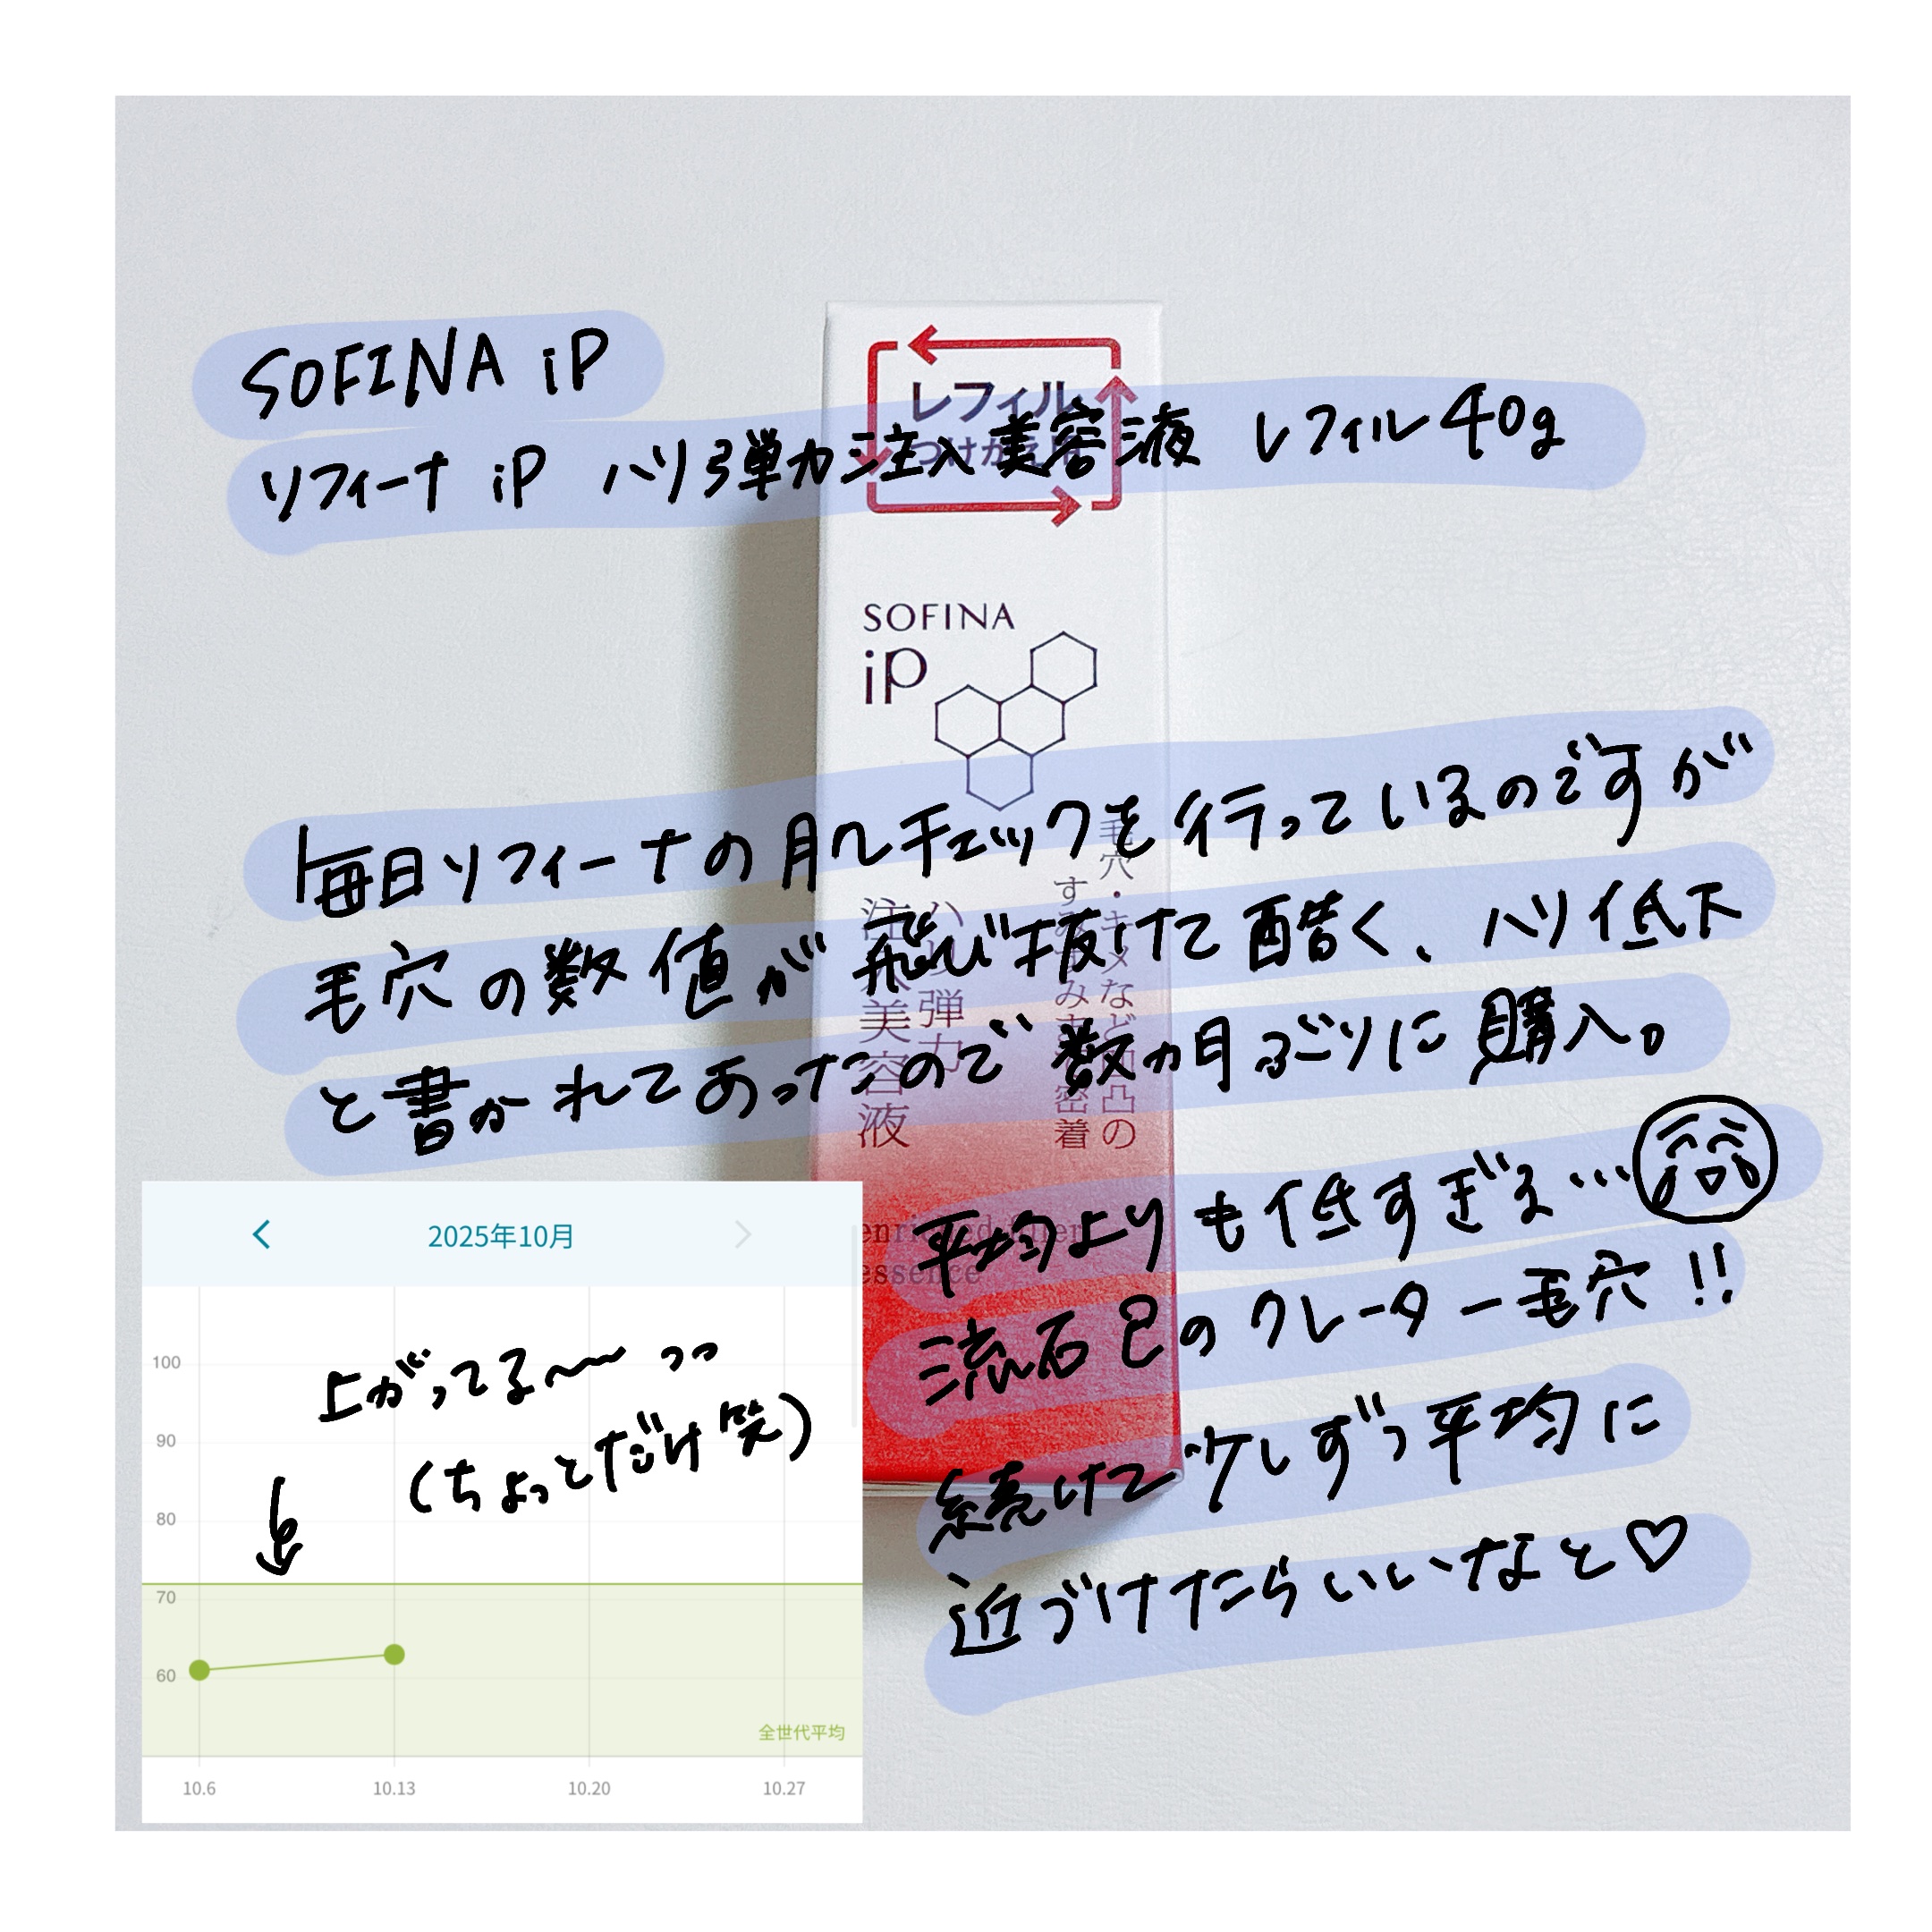 SOFINA iP
ソフィーナ iP ハリ弾力注入美容液 レフィル40g
レフィル
つけかえ用
SOFINA
iP
毎日ソフィーナの肌チェックを行っているのですが
毛穴の数値が飛び抜けて酷く、ハリ低下
と書かれてあったので数ヵ月ぶりに購入。
毛穴・キメなど凹凸の
すみずみまで密着
ハリ弾力
注入美容液
enriched filler
essence
平均よりも低すぎる…
流石己のクレーター毛穴!!
続けて少しずつ平均に
近づけたらいいなと♡
2025年10月
上がってる〜〜っっ
(ちょっとだけ笑)
100
90
80
70
60
全世代平均
10.6 10.13 10.20 10.27